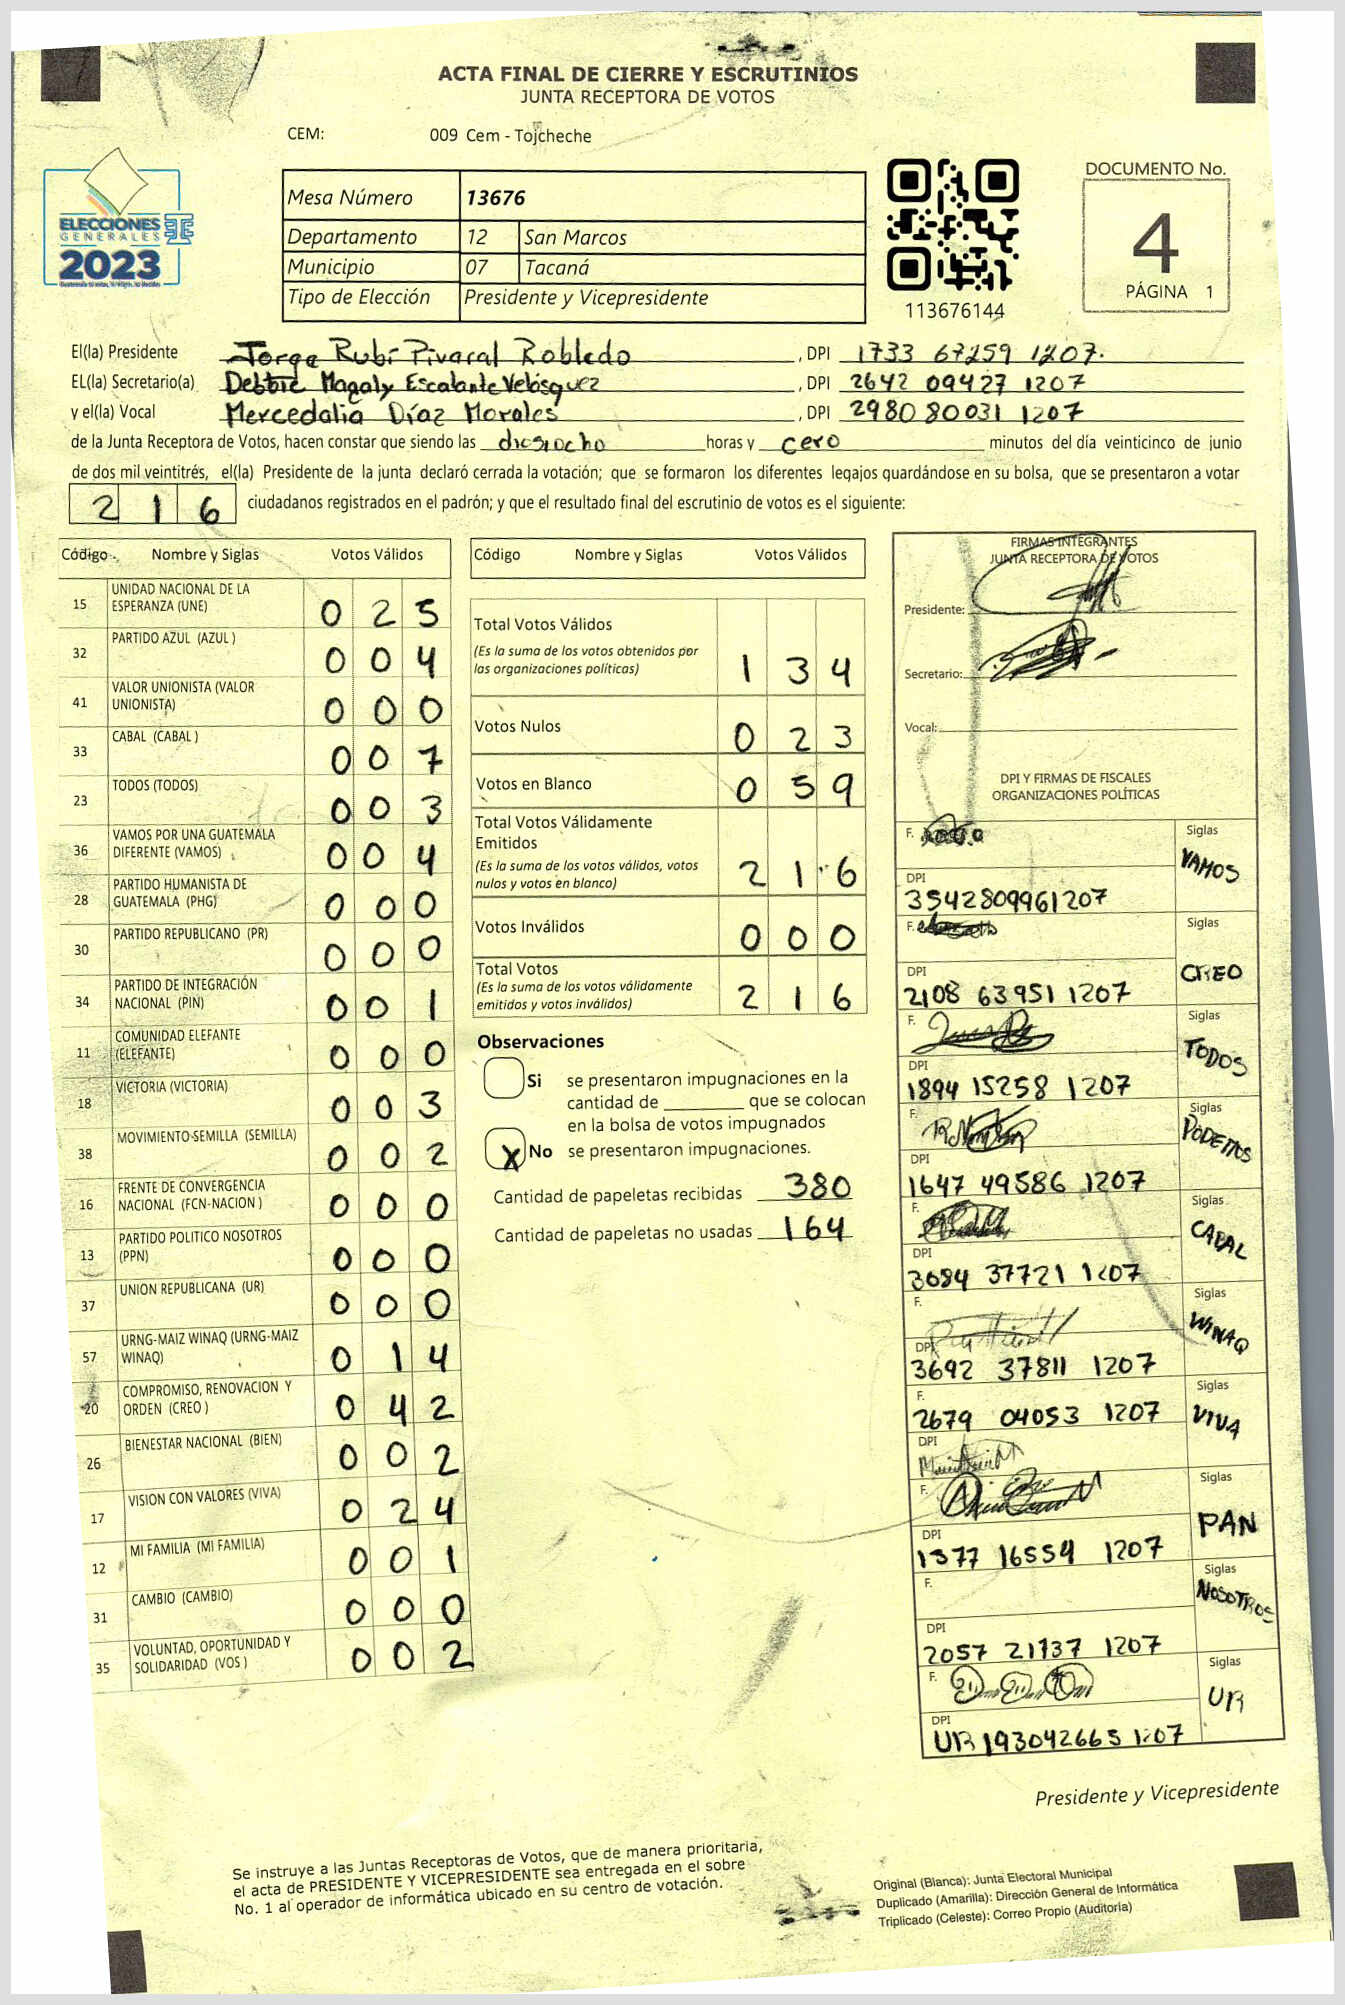 ACTA FINAL DE CIERRE Y ESCRUTINIOS
JUNTA RECEPTORA DE VOTOS
CEM: 009 Cem - Tojcheche
ELECCIONES
GENERALES
2023
Mesa Número 13676
Departamento 12 San Marcos
Municipio 07 Tacaná
Tipo de Elección Presidente y Vicepresidente
113676144
DOCUMENTO No.
4
PÁGINA 1
El(la) Presidente Jorge Rubí Pivaral Robledo, DPI 1733 67259 1207.
EL(la) Secretario(a) Debbie Magaly Escalante Velásquez, DPI 2642 09427 1207
y el(la) Vocal Mercedalia Díaz Morales, DPI 2980 80031 1207
de la Junta Receptora de Votos, hacen constar que siendo las diesiocho horas y cero minutos del día veinticinco de junio
de dos mil veintitrés, el(la) Presidente de la junta declaró cerrada la votación; que se formaron los diferentes legajos guardándose en su bolsa, que se presentaron a votar
216 ciudadanos registrados en el padrón; y que el resultado final del escrutinio de votos es el siguiente:
Código Nombre y Siglas Votos Válidos
15 UNIDAD NACIONAL DE LA ESPERANZA (UNE) 0 2 5
32 PARTIDO AZUL (AZUL ) 0 0 4
41 VALOR UNIONISTA (VALOR UNIONISTA) 0 0 0
33 CABAL (CABAL ) 0 0 7
23 TODOS (TODOS) 0 0 3
36 VAMOS POR UNA GUATEMALA DIFERENTE (VAMOS) 0 0 4
28 PARTIDO HUMANISTA DE GUATEMALA (PHG) 0 0 0
30 PARTIDO REPUBLICANO (PR) 0 0 0
34 PARTIDO DE INTEGRACIÓN NACIONAL (PIN) 0 0 1
11 COMUNIDAD ELEFANTE (ELEFANTE) 0 0 0
18 VICTORIA (VICTORIA) 0 0 3
38 MOVIMIENTO-SEMILLA (SEMILLA) 0 0 2
16 FRENTE DE CONVERGENCIA NACIONAL (FCN-NACION ) 0 0 0
13 PARTIDO POLITICO NOSOTROS (PPN) 0 0 0
37 UNION REPUBLICANA (UR) 0 0 0
57 URNG-MAIZ WINAQ (URNG-MAIZ WINAQ) 0 1 4
20 COMPROMISO, RENOVACION Y ORDEN (CREO ) 0 4 2
26 BIENESTAR NACIONAL (BIEN) 0 0 2
17 VISION CON VALORES (VIVA) 0 2 4
12 MI FAMILIA (MI FAMILIA) 0 0 1
31 CAMBIO (CAMBIO) 0 0 0
35 VOLUNTAD, OPORTUNIDAD Y SOLIDARIDAD (VOS ) 0 0 2
Código Nombre y Siglas Votos Válidos
Total Votos Válidos
(Es la suma de los votos obtenidos por
las organizaciones políticas) 1 3 4
Votos Nulos 0 2 3
Votos en Blanco 0 5 9
Total Votos Válidamente
Emitidos
(Es la suma de los votos válidos, votos
nulos y votos en blanco) 2 1 6
Votos Inválidos 0 0 0
Total Votos
(Es la suma de los votos válidamente
emitidos y votos inválidos) 2 1 6
Observaciones
Si se presentaron impugnaciones en la
cantidad de ________ que se colocan
en la bolsa de votos impugnados
X No se presentaron impugnaciones.
Cantidad de papeletas recibidas 380
Cantidad de papeletas no usadas 164
FIRMAS INTEGRANTES
JUNTA RECEPTORA DE VOTOS
Presidente:
Secretario:
Vocal:
DPI Y FIRMAS DE FISCALES
ORGANIZACIONES POLÍTICAS
F. Siglas VAMOS
DPI 3542809961207
F. Siglas CREO
DPI 2108 63951 1207
F. Siglas TODOS
DPI 1894 15258 1207
F. Siglas PODEMOS
DPI 1647 49586 1207
F. Siglas CABAL
DPI 3684 37721 1207
F. Siglas WINAQ
DPI 3692 37811 1207
F. 2679 04053 1207 Siglas VIVA
DPI
F. Siglas PAN
DPI 1377 16554 1207
F. Siglas NOSOTROS
DPI 2057 21737 1207
F. Siglas UR
DPI UR 193042665 1207
Presidente y Vicepresidente
Se instruye a las Juntas Receptoras de Votos, que de manera prioritaria,
el acta de PRESIDENTE Y VICEPRESIDENTE sea entregada en el sobre
No. 1 al operador de informática ubicado en su centro de votación.
Original (Blanca): Junta Electoral Municipal
Duplicado (Amarilla): Dirección General de Informática
Triplicado (Celeste): Correo Propio (Auditoría)